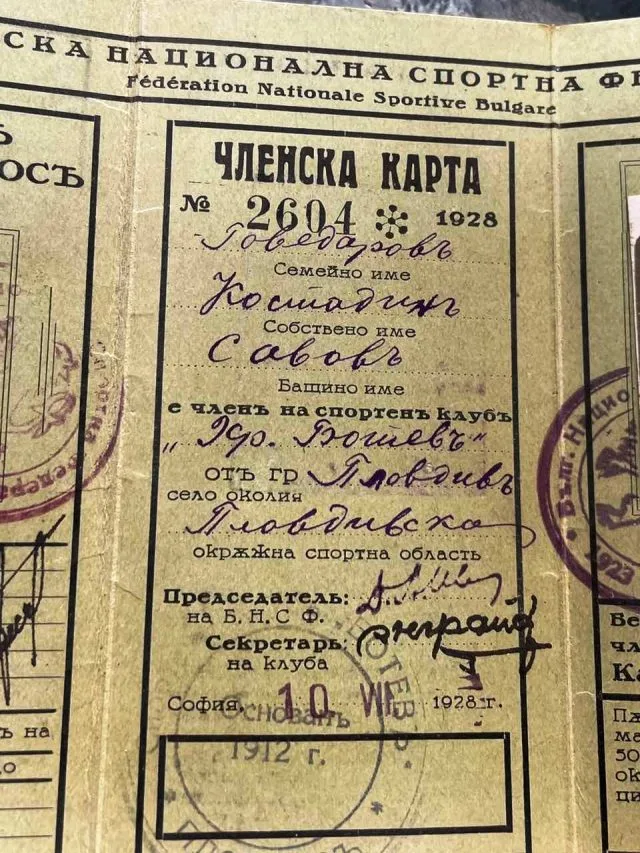 СКА НАЦИОНАЛНА СПОРТНА ФЕ
Fédération Nationale Sportive Bulgare
ОСЪ
ЧЛЕНСКА КАРТА
№ 2604 1928
Говедаровъ
Семейно име
Костадинъ
Собствено име
Савовъ
Бащино име
е членъ на спортенъ клубъ
„Хр. Ботевъ"
отъ гр Пловдивъ
село околия
Пловдивска
окрѫжна спортна область
Председатель:
на Б. Н. С Ф.
Секретарь:
на клуба
София, 10 VII 1928 г.
Основанъ
1912 г.
БОТЕВЪ
Бълг. Нацио
1923
ъ на